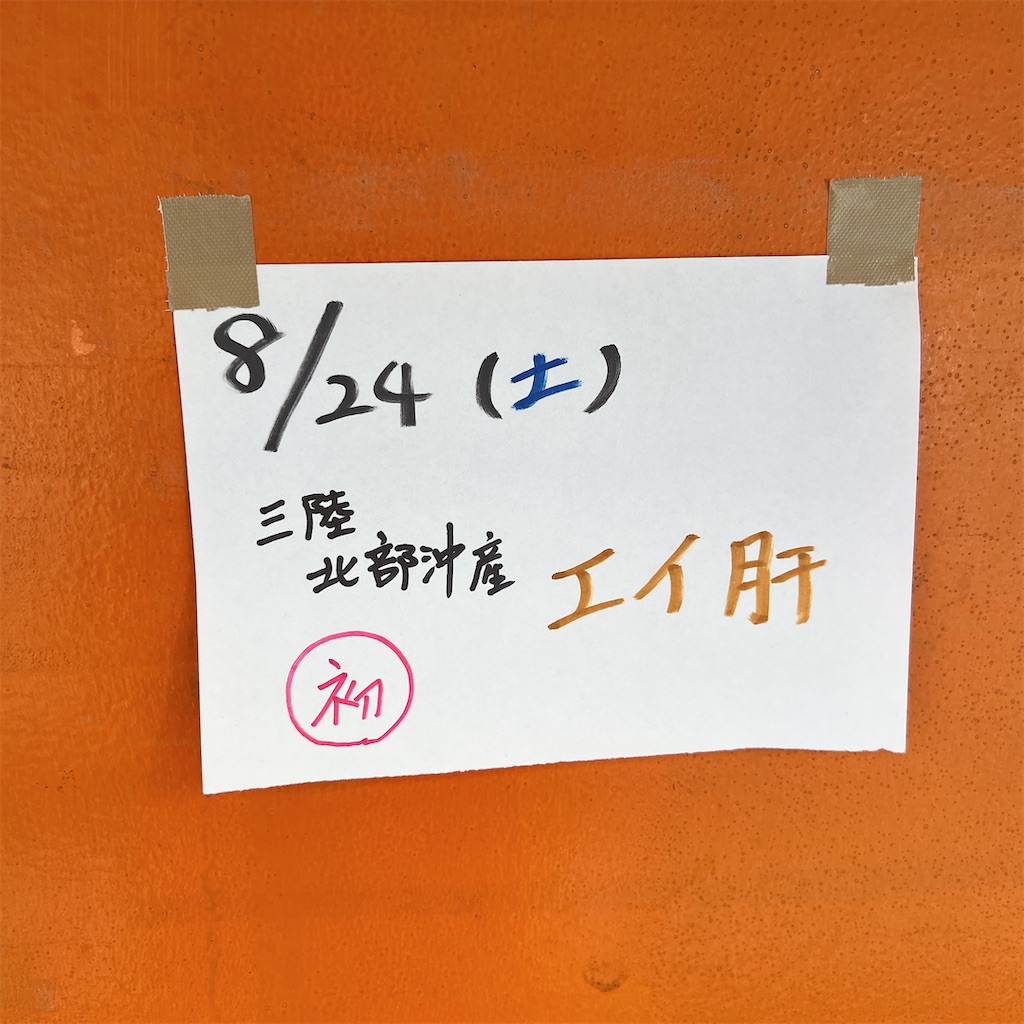 8/24(土)
三陸
北部沖産 エイ肝
初